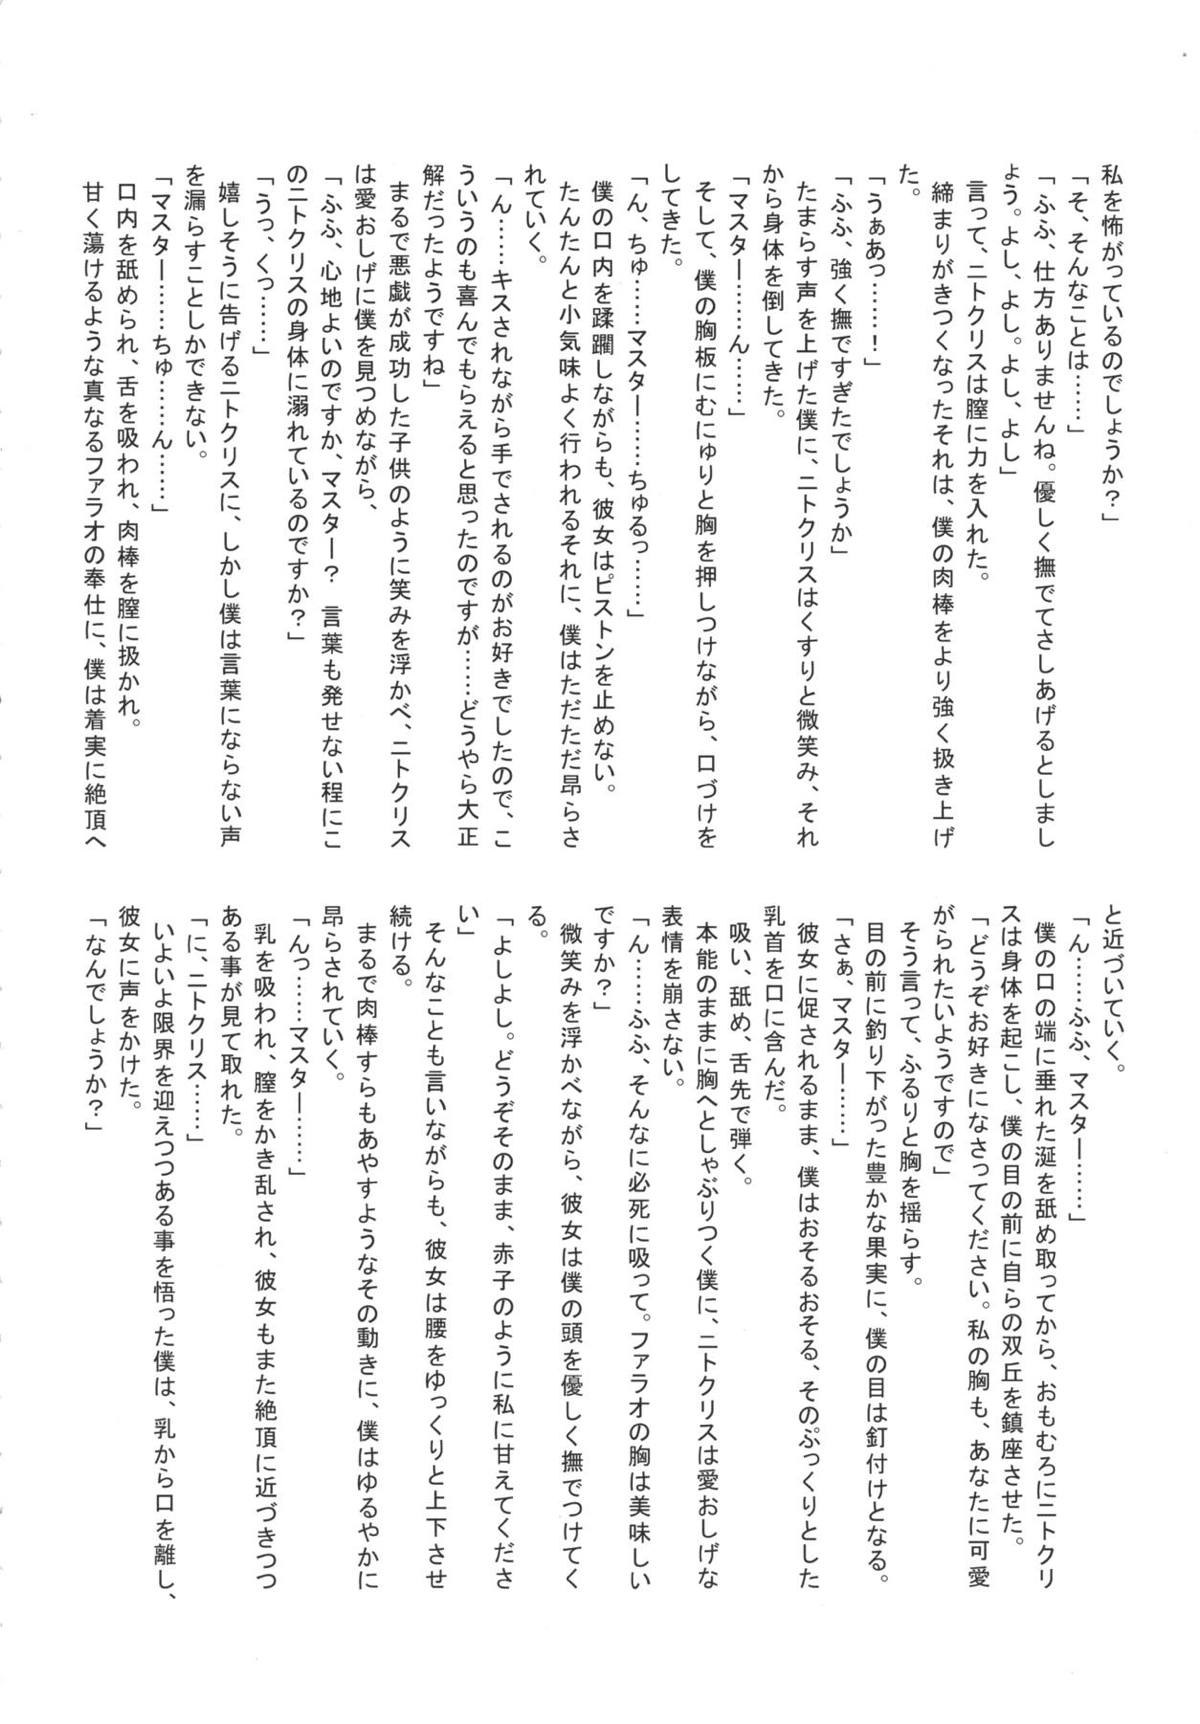 私を怖がっているのでしょうか？」
「そ、そんなことは……」
「ふふ、仕方ありませんね。優しく撫でてさしあげるとしまし
ょう。よし、よし。よし、よし」
言って、ニトクリスは膣に力を入れた。
締まりがきつくなったそれは、僕の肉棒をより強く扱き上げ
た。
「うぁあっ……！」
「ふふ、強く撫ですぎたでしょうか」
たまらす声を上げた僕に、ニトクリスはくすりと微笑み、それ
から身体を倒してきた。
「マスター……ん……」
そして、僕の胸板にむにゅりと胸を押しつけながら、口づけを
してきた。
「ん、ちゅ……マスター……ちゅるっ……」
僕の口内を蹂躙しながらも、彼女はピストンを止めない。
たんたんと小気味よく行われるそれに、僕はただただ昂らさ
れていく。
「ん……キスされながら手でされるのがお好きでしたので、こ
ういうのも喜んでもらえると思ったのですが……どうやら大正
解だったようですね」
まるで悪戯が成功した子供のように笑みを浮かべ、ニトクリス
は愛おしげに僕を見つめながら、
「ふふ、心地よいのですか、マスター？　言葉も発せない程にこ
のニトクリスの身体に溺れているのですか？」
「うっ、くっ……」
嬉しそうに告げるニトクリスに、しかし僕は言葉にならない声
を漏らすことしかできない。
「マスター……ちゅ……ん……」
口内を舐められ、舌を吸われ、肉棒を膣に扱かれ。
甘く蕩けるような真なるファラオの奉仕に、僕は着実に絶頂へ
と近づいていく。
「ん……ふふ、マスター……」
僕の口の端に垂れた涎を舐め取ってから、おもむろにニトクリ
スは身体を起こし、僕の目の前に自らの双丘を鎮座させた。
「どうぞお好きになさってください。私の胸も、あなたに可愛
がられたいようですので」
そう言って、ふるりと胸を揺らす。
目の前に釣り下がった豊かな果実に、僕の目は釘付けとなる。
「さぁ、マスター……」
彼女に促されるまま、僕はおそるおそる、そのぷっくりとした
乳首を口に含んだ。
吸い、舐め、舌先で弾く。
本能のままに胸へとしゃぶりつく僕に、ニトクリスは愛おしげな
表情を崩さない。
「ん……ふふ、そんなに必死に吸って。ファラオの胸は美味しい
ですか？」
微笑みを浮かべながら、彼女は僕の頭を優しく撫でつけてく
る。
「よしよし。どうぞそのまま、赤子のように私に甘えてくださ
い」
そんなことも言いながらも、彼女は腰をゆっくりと上下させ
続ける。
まるで肉棒すらもあやすようなその動きに、僕はゆるやかに
昂らされていく。
「んっ……マスター……」
乳を吸われ、膣をかき乱され、彼女もまた絶頂に近づきつつ
ある事が見て取れた。
「に、ニトクリス……」
いよいよ限界を迎えつつある事を悟った僕は、乳から口を離し、
彼女に声をかけた。
「なんでしょうか？」